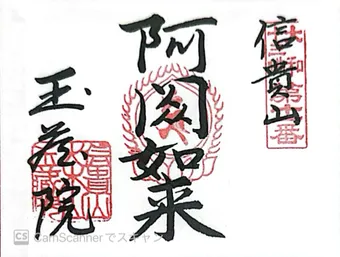 信貴山
阿閦如来
玉蔵院
CS CamScannerでスキャン